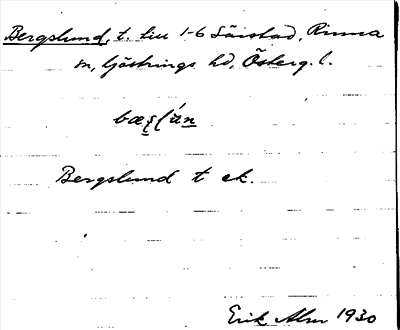 Bergslund, t. Liu 1-6 Säistad, Rinna
sn, Göstrings hd, Österg. l.
Bergslund t ek.
Erik Alm 1930